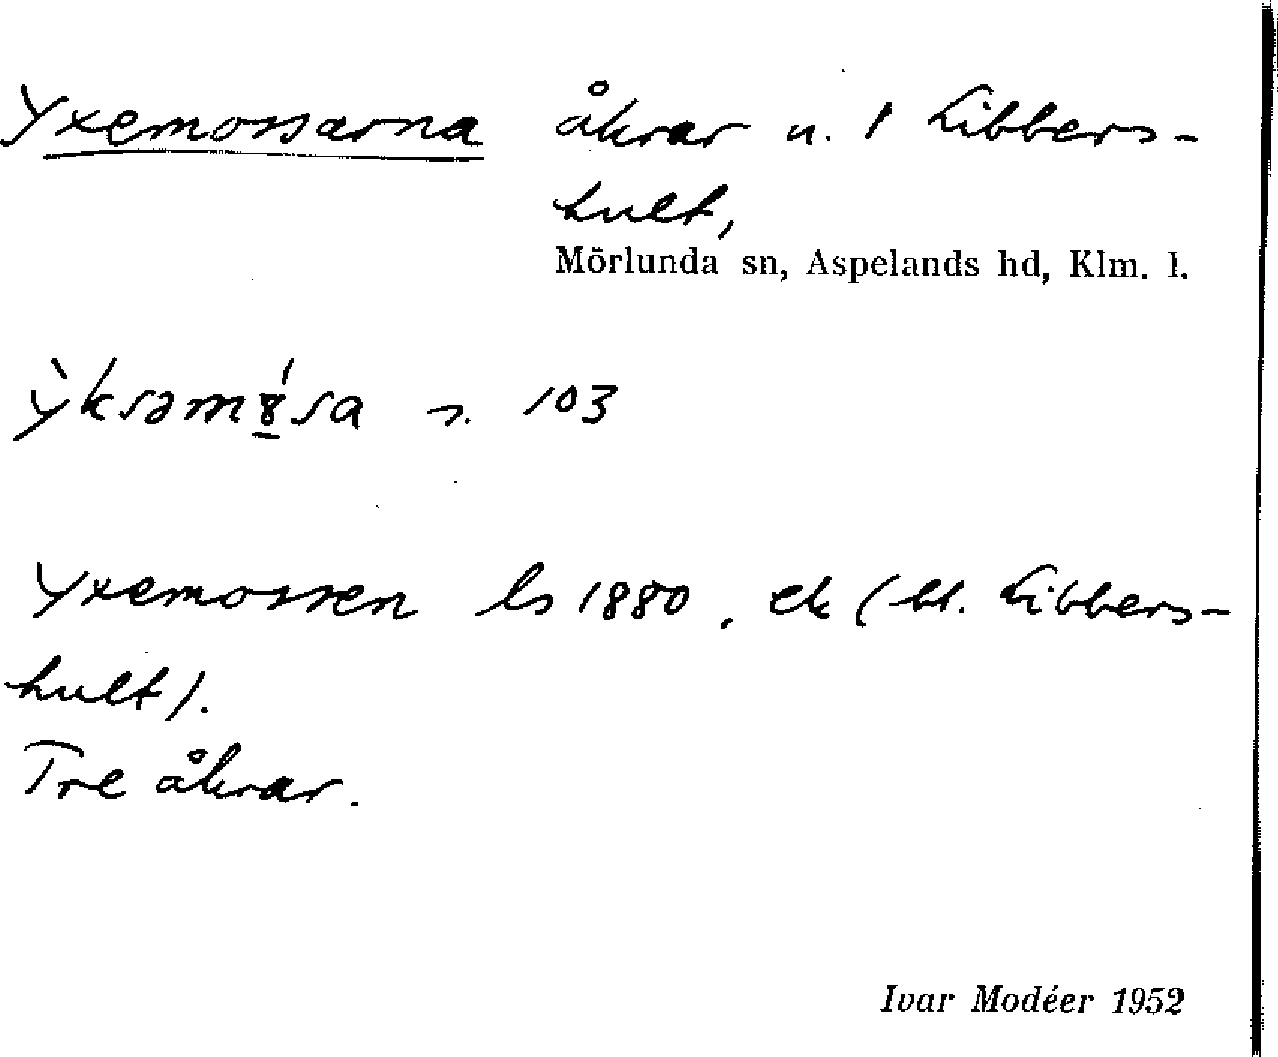 Yxemossarna åkrar u. 1 Libbers-
hult,
Mörlunda sn, Aspelands hd, Klm. l.
ỳksəm8́sa s. 103
Yxemossen ls 1880, ek (bl. Libbers-
hult).
Tre åkrar.
Ivar Modéer 1952